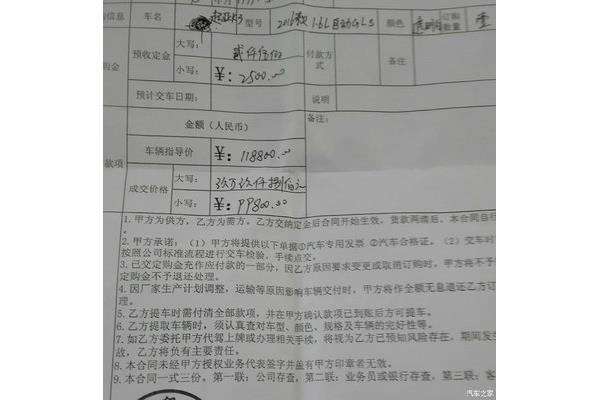 信息 车名 K3 型号 2016款 1.6L自动GLS 颜色 订购数量 壹
购金 预收定金 大写: 贰仟伍佰 付款方式 备注
小写: ¥: 2500.00
预计交车日期: 说明
金额(人民币) 备注:
款项 车辆指导价 ¥: 118800.00
成交价格 大写: 玖万玖仟捌佰元
小写: ¥: 99800.00
1. 甲方为供方,乙方为需方。乙方交纳定金后合同开始生效,货款两清后,本合同自行
2. 甲方承诺:(1)甲方将提供以下单据①汽车专用发票 ②汽车合格证。(2)交车时
按照公司标准流程进行交车检验,手续点交。
3. 已交定购金充作应付款的一部分,因乙方原因要求变更或取消订购时,甲方将不予
定购金不予退还处理。
4. 因厂家生产计划调整,运输等原因影响车辆交付时,甲方将作全额无息退还乙方订
理。
5. 乙方提车时需付清全部款项,并在甲方确认款项已到账后方可提车。
6. 乙方提取车辆时,须认真查对车型、颜色、规格及车辆的完好性等。
7. 如乙方委托甲方代驾上牌或办理相关手续,将视为乙方已预知风险存在,期间发生
故,乙方将负有主要责任。
8. 本合同未经甲方授权业务代表签字并盖有甲方印章者无效。
9. 本合同一式三份。第一联:公司存查,第二联:业务员或银行存查,第三联:客
汽车之家